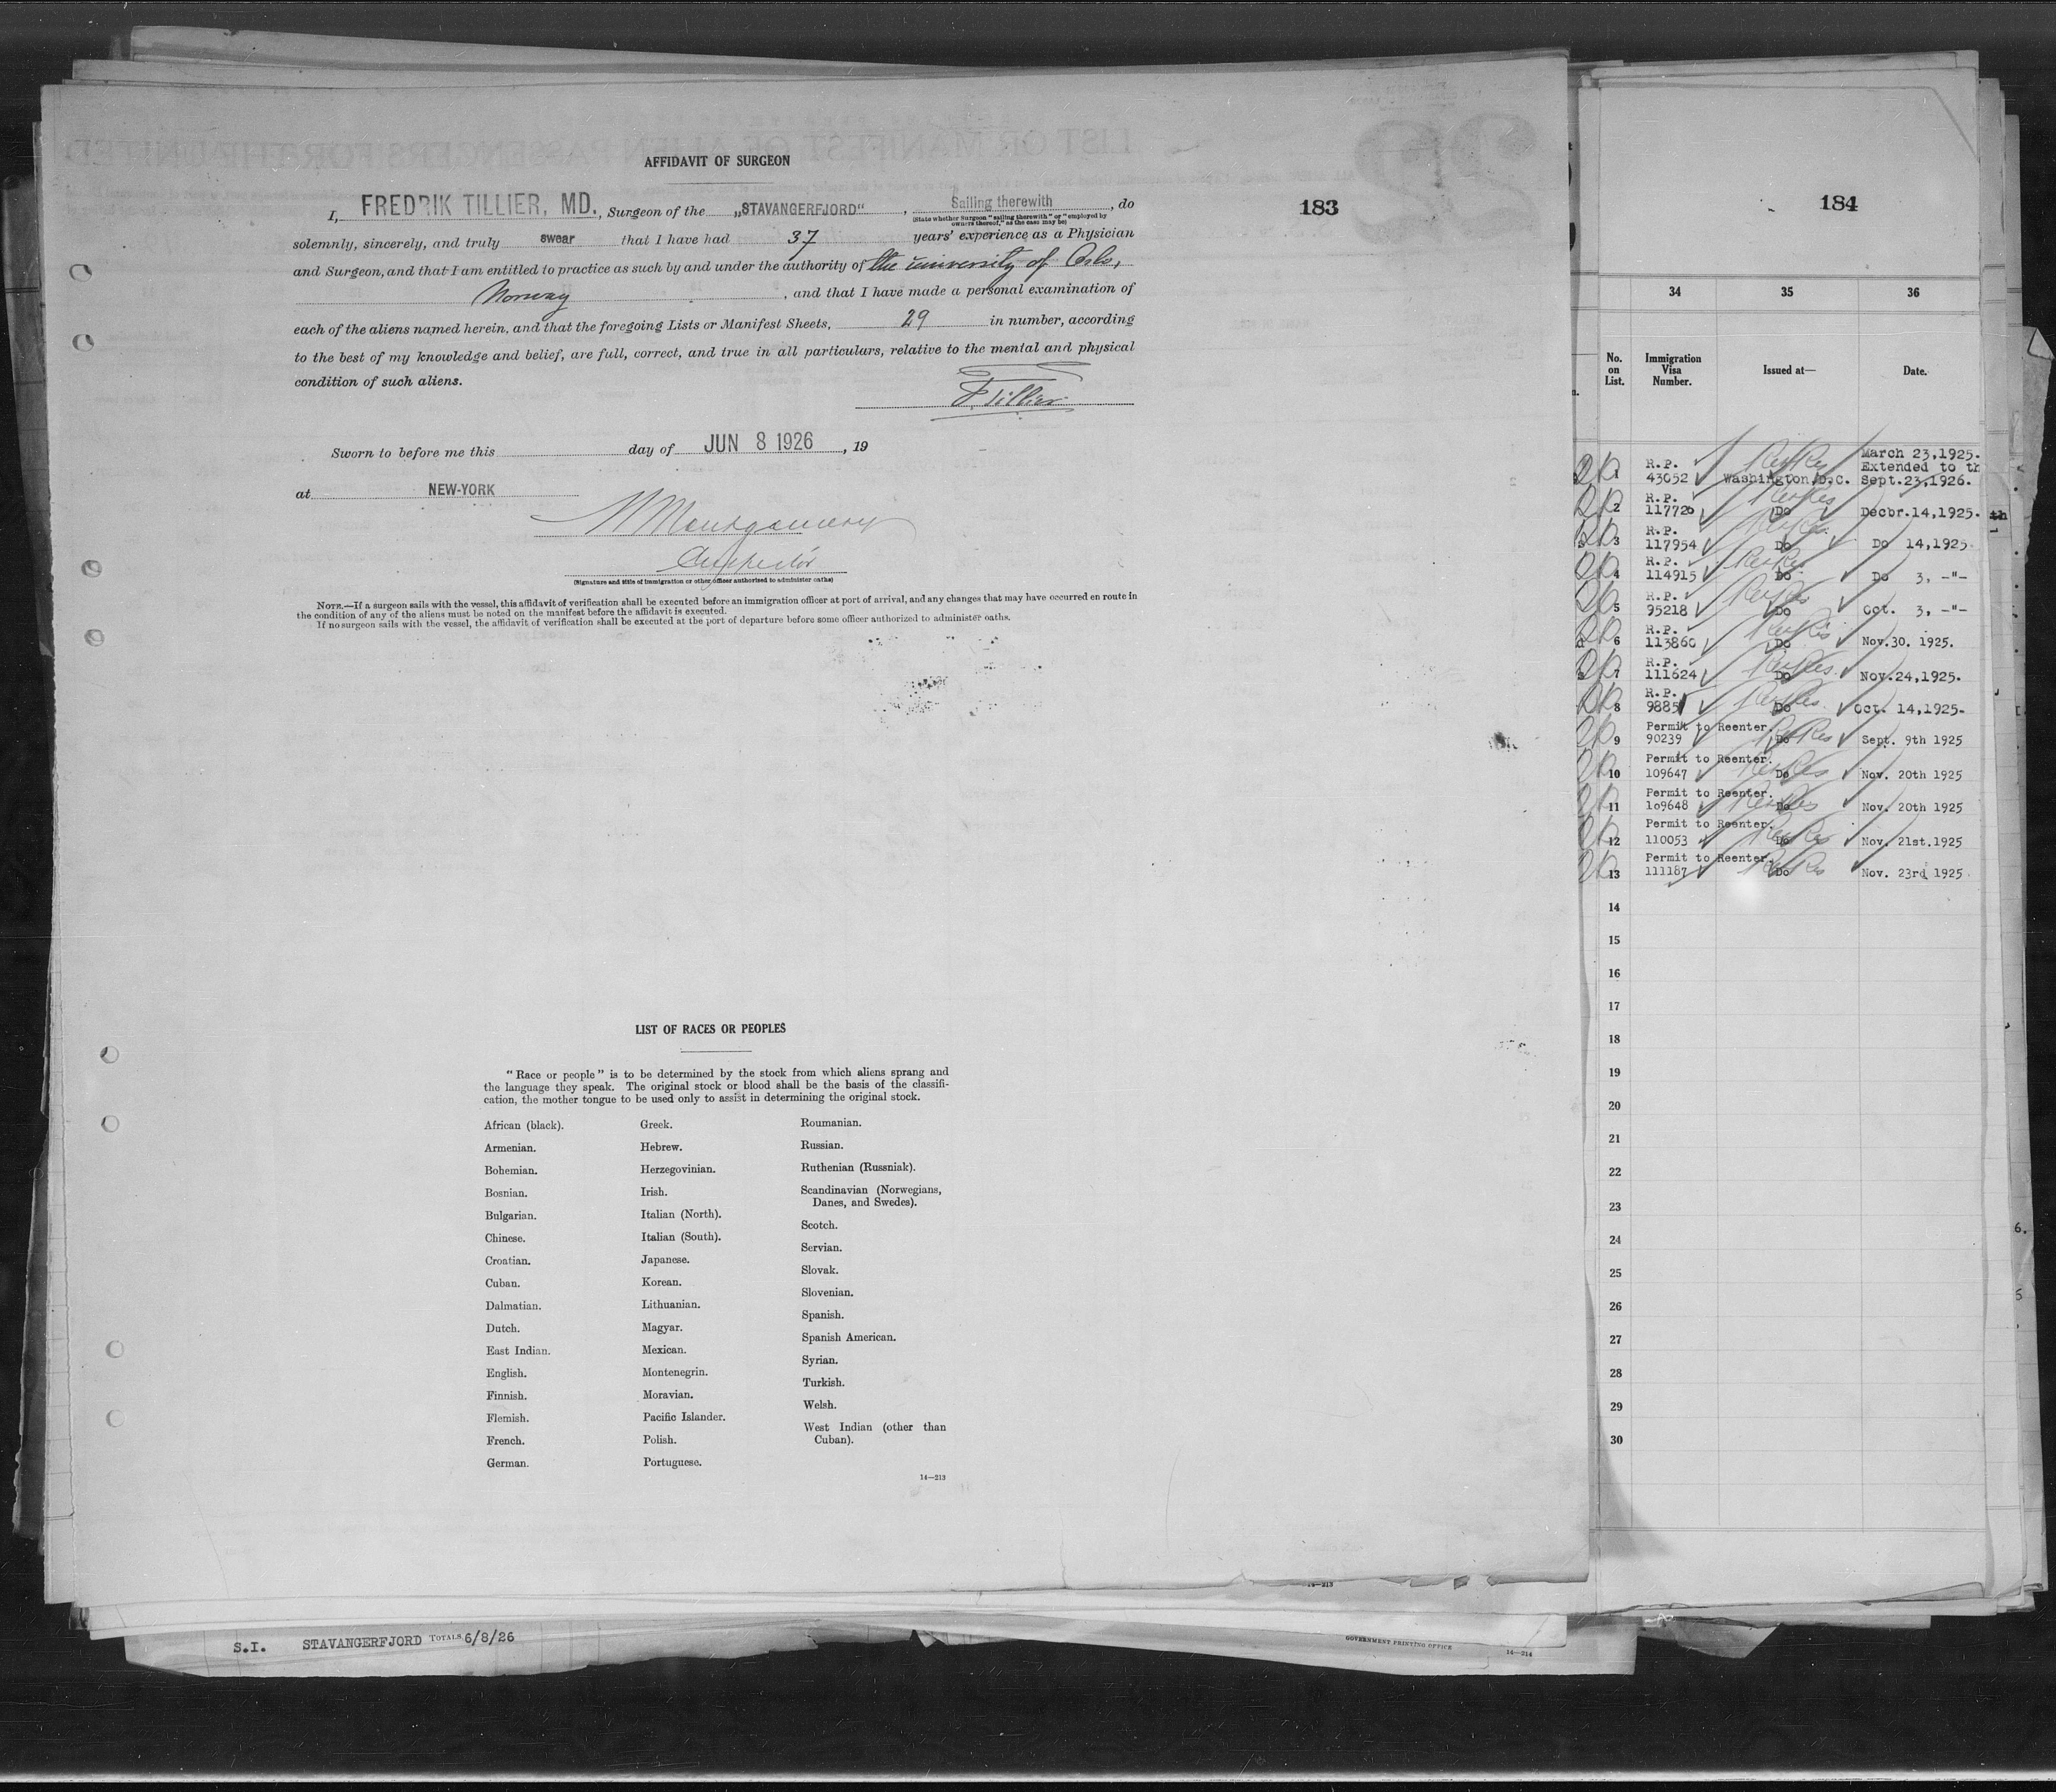 AFFIDAVIT OF SURGEON
I, FREDRIK TILLIER, MD., Surgeon of the „STAVANGERFJORD“, Sailing therewith, do
(State whether Surgeon "sailing therewith" or "employed by owners thereof," as the case may be)
solemnly, sincerely, and truly swear that I have had 37 years' experience as a Physician
and Surgeon, and that I am entitled to practice as such by and under the authority of the university of Oslo,
Norway, and that I have made a personal examination of
each of the aliens named herein, and that the foregoing Lists or Manifest Sheets, 29 in number, according
to the best of my knowledge and belief, are full, correct, and true in all particulars, relative to the mental and physical
condition of such aliens.
F Tillier
Sworn to before me this day of JUN 8 1926, 19
at NEW-YORK
Montgomery
(Signature and title of immigration or other officer authorized to administer oaths)
NOTE.—If a surgeon sails with the vessel, this affidavit of verification shall be executed before an immigration officer at port of arrival, and any changes that may have occurred en route in
the condition of any of the aliens must be noted on the manifest before the affidavit is executed.
If no surgeon sails with the vessel, the affidavit of verification shall be executed at the port of departure before some officer authorized to administer oaths.
183
LIST OF RACES OR PEOPLES
"Race or people" is to be determined by the stock from which aliens sprang and
the language they speak. The original stock or blood shall be the basis of the classifi-
cation, the mother tongue to be used only to assist in determining the original stock.
African (black).
Armenian.
Bohemian.
Bosnian.
Bulgarian.
Chinese.
Croatian.
Cuban.
Dalmatian.
Dutch.
East Indian.
English.
Finnish.
Flemish.
French.
German.
Greek.
Hebrew.
Herzegovinian.
Irish.
Italian (North).
Italian (South).
Japanese.
Korean.
Lithuanian.
Magyar.
Mexican.
Montenegrin.
Moravian.
Pacific Islander.
Polish.
Portuguese.
Roumanian.
Russian.
Ruthenian (Russniak).
Scandinavian (Norwegians,
Danes, and Swedes).
Scotch.
Servian.
Slovak.
Slovenian.
Spanish.
Spanish American.
Syrian.
Turkish.
Welsh.
West Indian (other than
Cuban).
14—213
184
34 35 36
No. on List. Immigration Visa Number. Issued at— Date.
March 23,1925.
R.P. Extended to th
1 43052 Washington D.C. Sept.23,1926.
R.P.
2 117720 Do Decbr.14,1925.
R.P.
3 117954 Do Do 14,1925
R.P.
4 114915 Do Do 3, -"-
R.P.
5 95218 Do Oct. 3, -"-
R.P.
6 113860 Do Nov.30. 1925.
R.P.
7 111624 Do Nov.24,1925.
R.P.
8 9885 Do Oct. 14,1925.
Permit to Reenter.
9 90239 Do Sept. 9th 1925
Permit to Reenter.
10 109647 Do Nov. 20th 1925
Permit to Reenter.
11 109648 Do Nov. 20th 1925
Permit to Reenter.
12 110053 Do Nov. 21st.1925
Permit to Reenter.
13 111187 Do Nov. 23rd 1925
14
15
16
17
18
19
20
21
22
23
24
25
26
27
28
29
30
S.I. STAVANGERFJORD TOTALS 6/8/26
GOVERNMENT PRINTING OFFICE
14—214